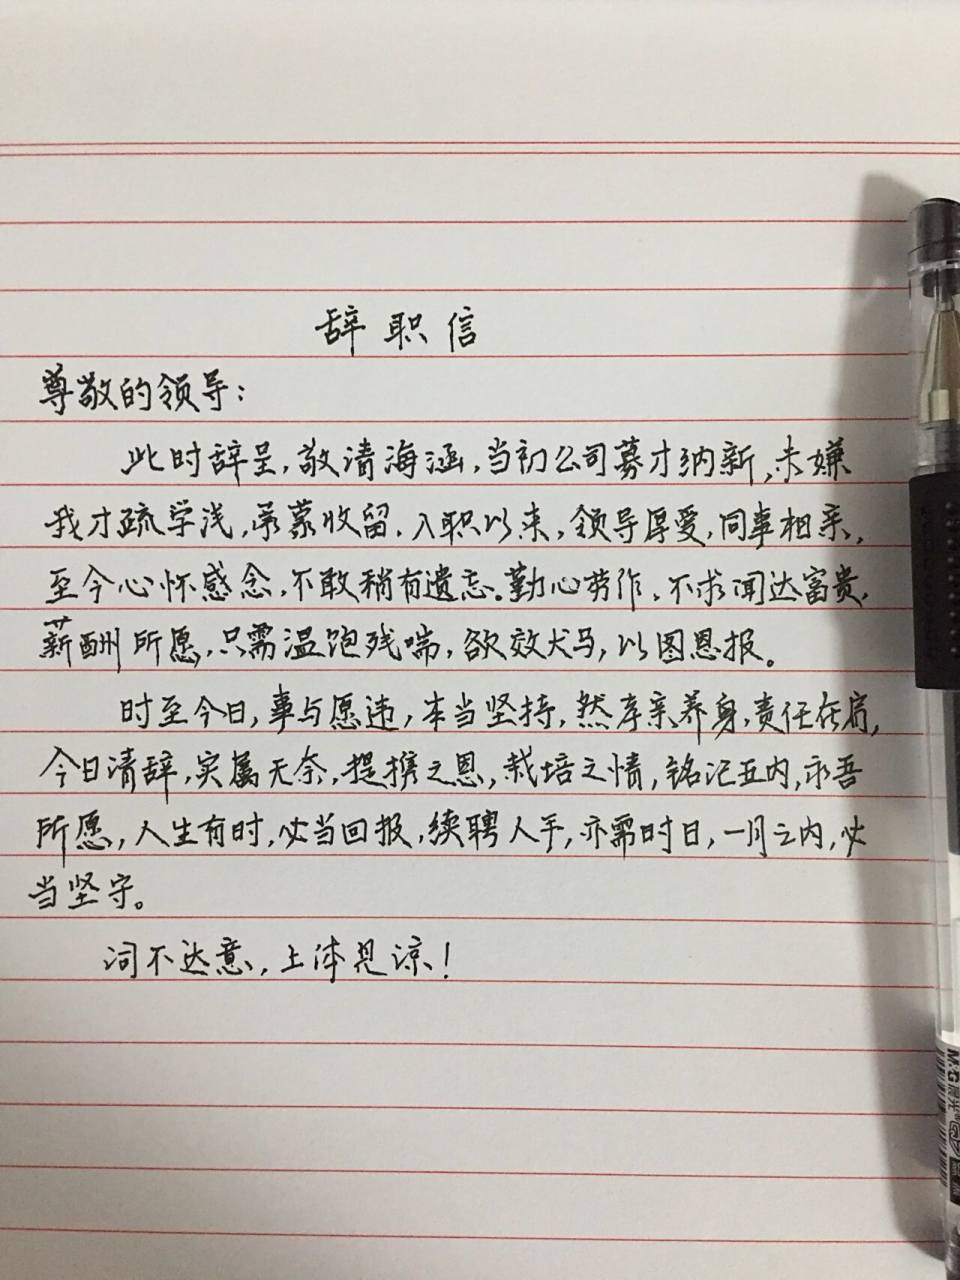 辞职信
尊敬的领导：
此时辞呈，敬请海涵，当初公司募才纳新，未嫌
我才疏学浅，承蒙收留，入职以来，领导厚爱，同事相亲，
至今心怀感念，不敢稍有遗忘。勤心劳作，不求闻达富贵，
薪酬所愿，只需温饱残喘，欲效犬马，以图恩报。
时至今日，事与愿违，本当坚持，然孝亲养身，责任在肩，
今日请辞，实属无奈，提携之恩，栽培之情，铭记五内，亦吾
所愿，人生有时，必当回报，续聘人手，亦需时日，一月之内，必
当坚守。
词不达意，上体见谅！
M&G